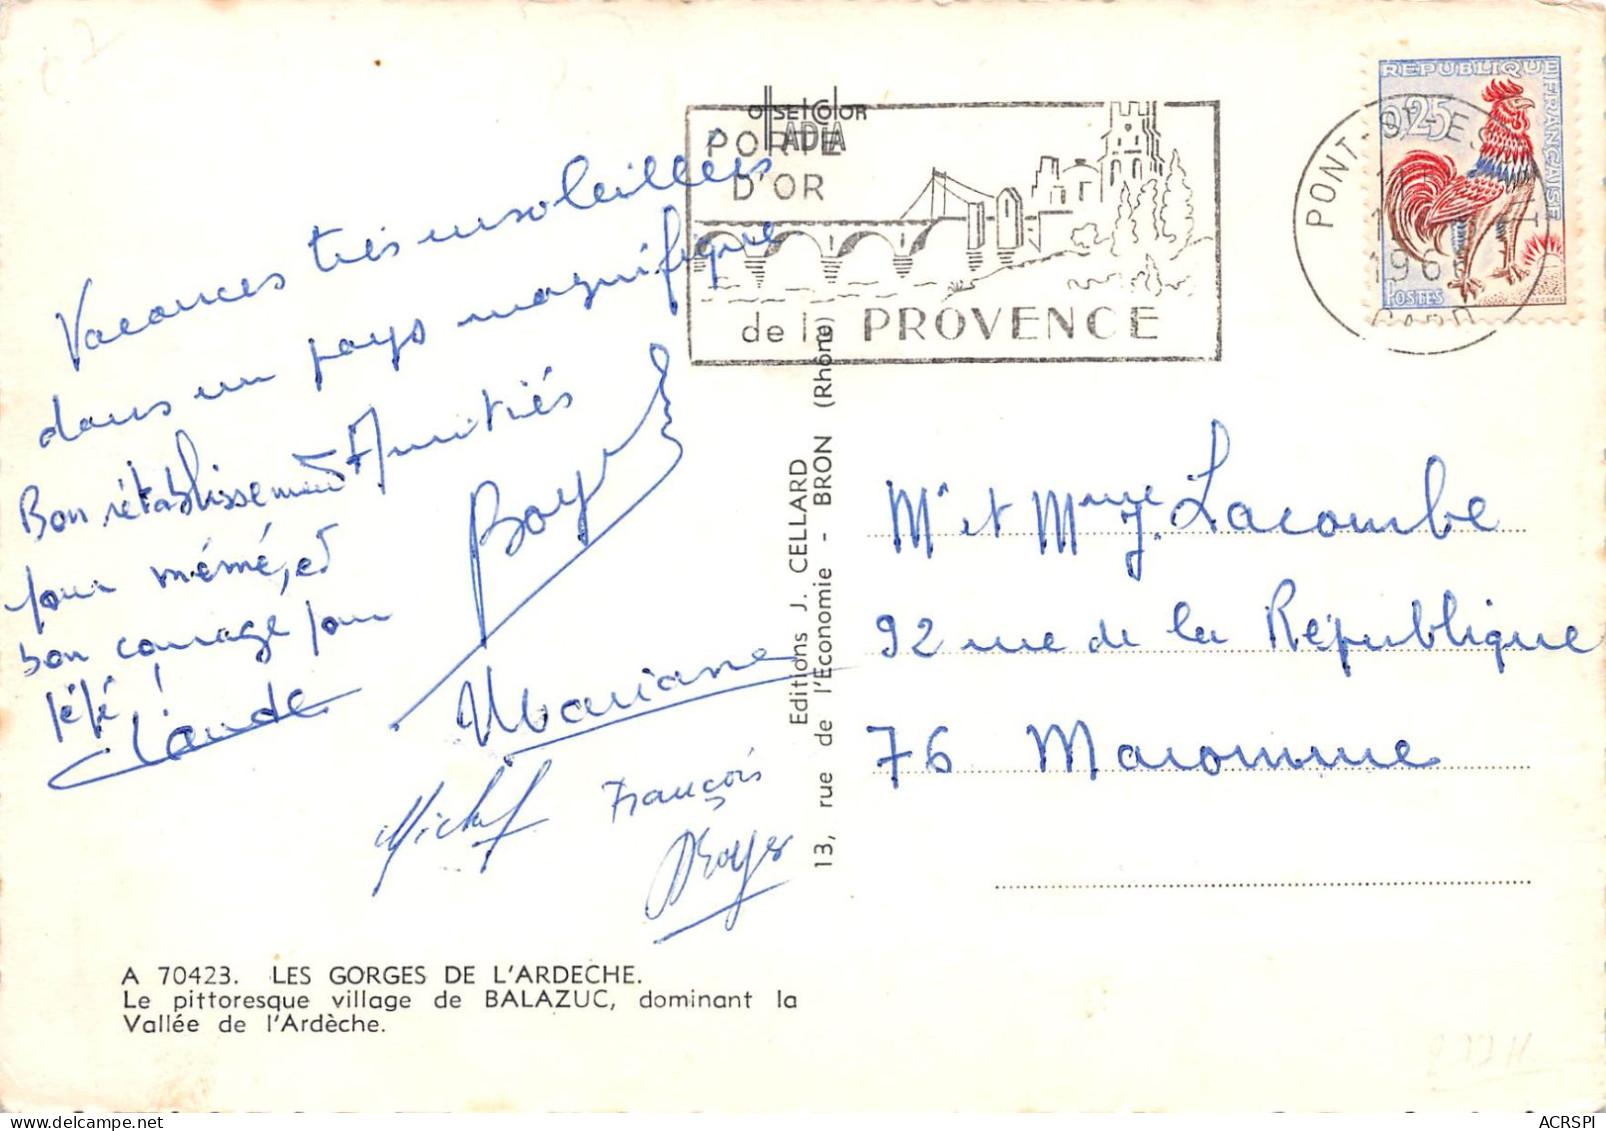 Vacances très ensoleillées
dans un pays magnifique
Amitiés
Bon rétablissement
pour mémé, et
bon courage pour
pépé !
Claude
Mariane
Michel
François
offsetcolor
ADIA
PORTE
D'OR
de la PROVENCE
REPUBLIQUE FRANÇAISE
0,25
POSTES
PONT-ST-ES
196
GARD
Editions J. CELLARD
13, rue de l'Economie - BRON (Rhône)
Mr et Mme J. Lacombe
92 rue de la République
76 Maromme
A 70423. LES GORGES DE L'ARDECHE.
Le pittoresque village de BALAZUC, dominant la
Vallée de l'Ardèche.
ACRSPI